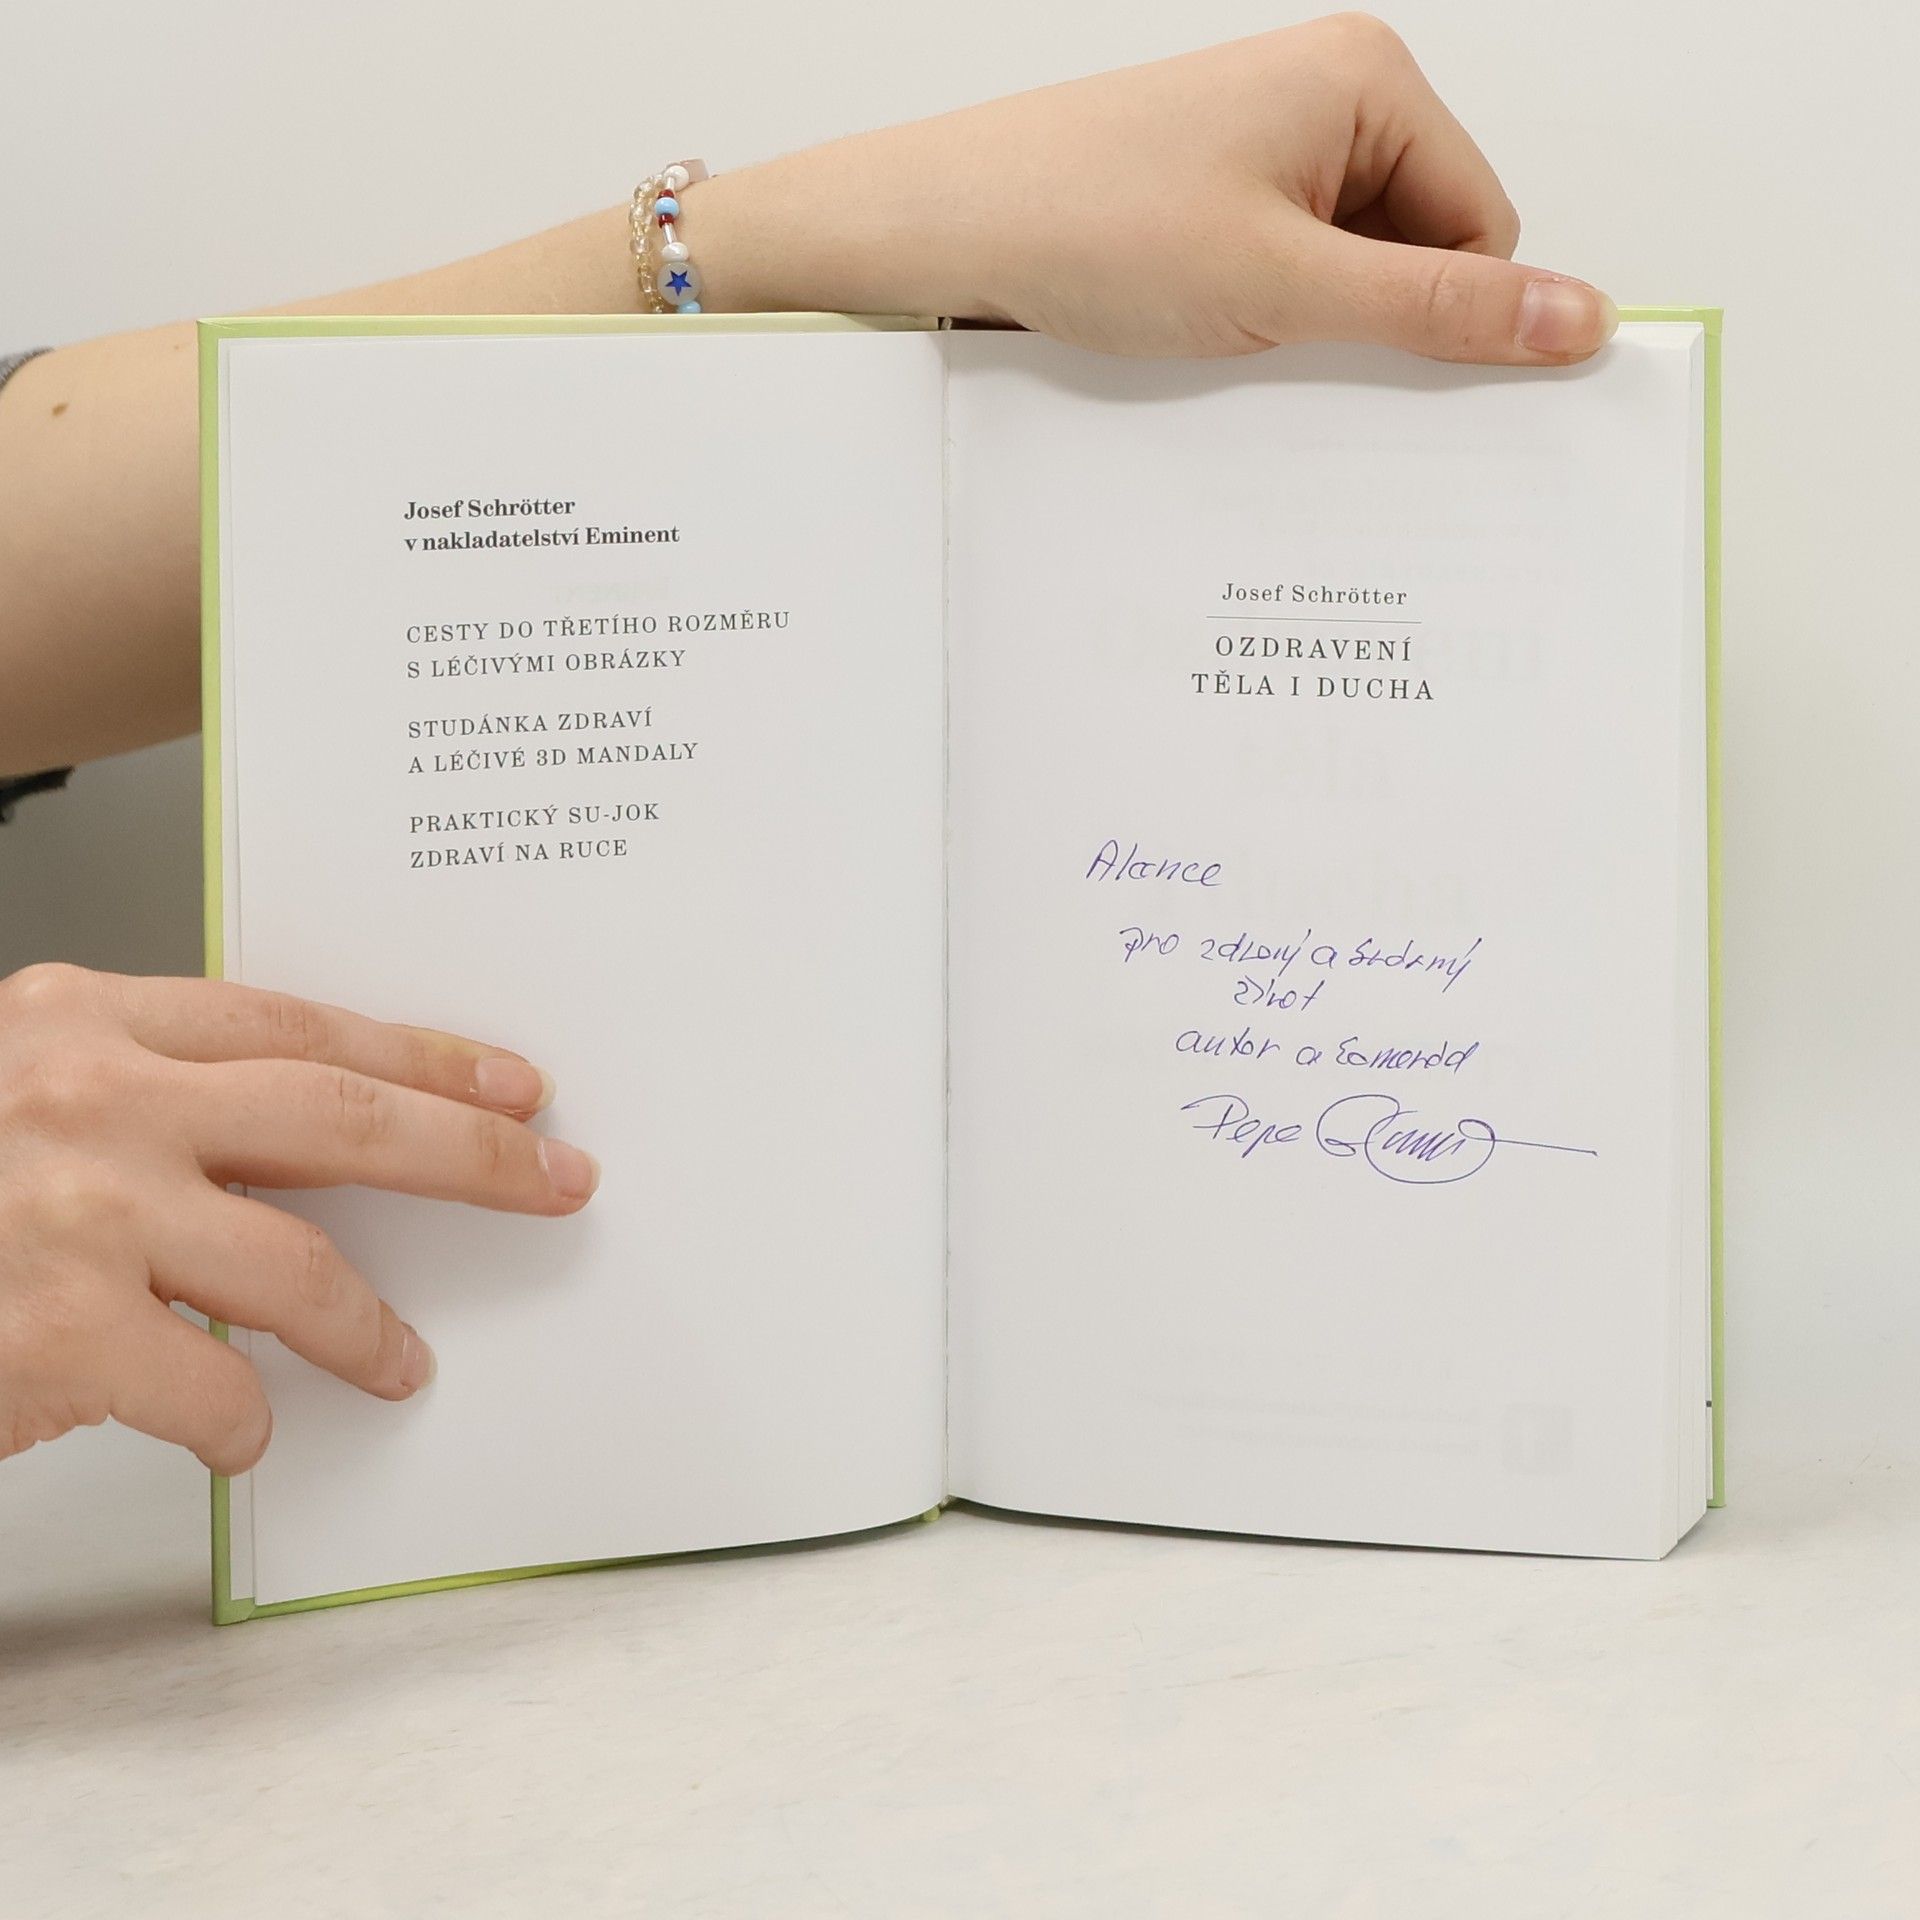 Josef Schrötter
v nakladatelství Eminent
CESTY DO TŘETÍHO ROZMĚRU
S LÉČIVÝMI OBRÁZKY
STUDÁNKA ZDRAVÍ
A LÉČIVÉ 3D MANDALY
PRAKTICKÝ SU-JOK
ZDRAVÍ NA RUCE
Josef Schrötter
OZDRAVENÍ
TĚLA I DUCHA
pro zdravý a krásný
život
autor a kamarád
Pepe